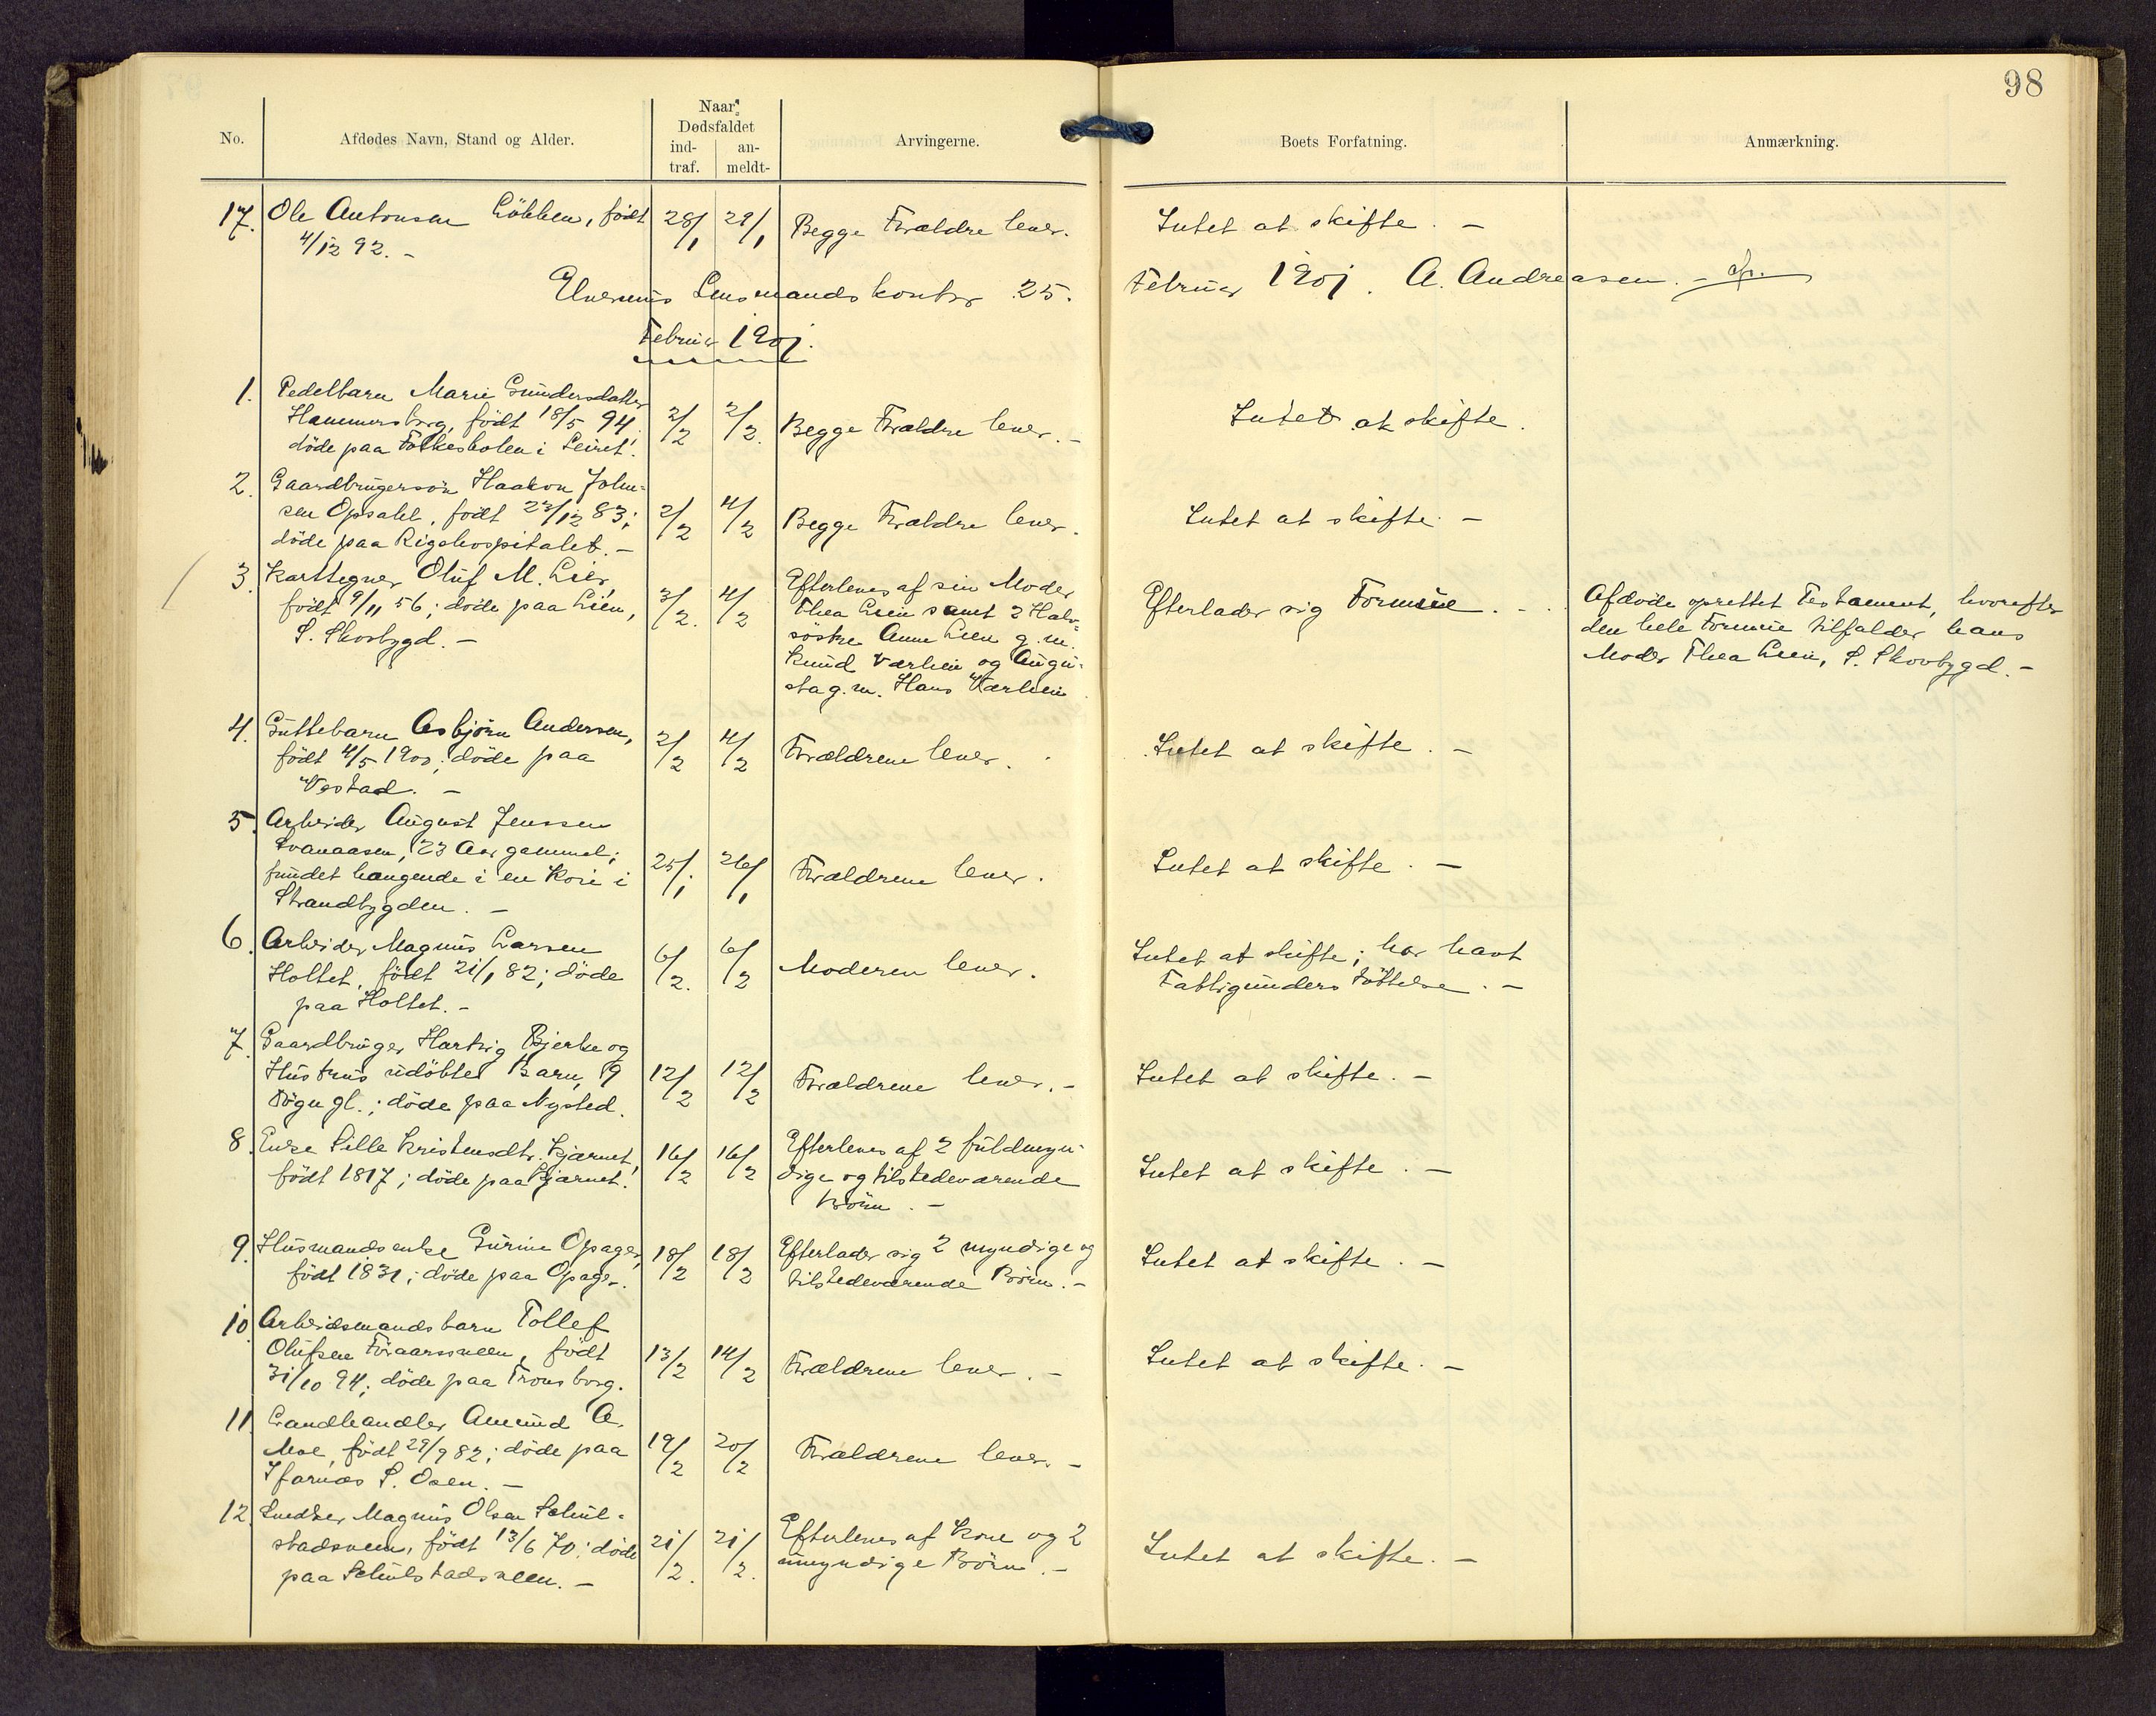 98
No.
Afdødes Navn, Stand og Alder.
Naar
Dødsfaldet
ind-
traf.
an-
meldt-
Arvingerne.
Boets Forfatning.
Anmærkning.
17. Ole Antonsen Löbben, født 28/1 29/1 Begge Forældre lever. Intet at skifte. -
4/12 92. -
Elverums Lensmandskontor 25. Februar 1901. A. Andreasen. -
Februar 1901.
1. Pedelbarn Marie Gundersdatter
Hammersberg, født 18/5 94 2/2 2/2. Begge Forældre lever. - Intet at skifte.
døde paa Folkeskolen i Leiret.
2. Gaardbrugersøn Haakon John-
sen Opsahl, født 23/12 83; 2/2 4/2 Begge Forældre lever. Intet at skifte. -
døde paa Rigshospitalet. -
3. Karttegner Oluf M. Lien,
født 9/11 56; døde paa Lien, 3/2. 4/2
S. Skovbygd. -
Efterleves af sin Moder
Thea Lien samt 2 Halv-
søstre Anne Lien g. m.
Knud Værlien og Augu-
sta g. m. Hans Værlien
Efterlader sig Formue. -
Afdøde oprettet Testament, hvorefter
den hele Formue tilfalder hans
Moder Thea Lien, S. Skovbygd. -
4. Guttebarn Asbjørn Andersen,
født 4/5 1900; døde paa 2/2 4/2 Forældrene lever. Intet at skifte. -
Vestad. -
5. Arbeider August Jenssen
Svanaasen, 23 Aar gammel; 25/1 26/1 Forældrene lever. Intet at skifte. -
fundet hængende i en Koie i
Strandbygden. -
6. Arbeider Magnus Larsen
Holtet, født 21/1 82; døde 6/2. 6/2 Moderen lever.
paa Holtet. -
Intet at skifte; har havt
Fattigunderstøttelse. -
7. Gaardbruger Hartvig Bjerke og
Hustrus udøbte Barn, 9 12/2 12/2 Forældrene lever. - Intet at skifte. -
Døgn gl.; døde paa Nysted.
8. Enke Sille Kristensdtr. Kjærnet, 16/2 16/2
født 1817; døde paa Kjærnet.
Efterleves af 2 fuldmyn-
dige og tilstedeværende
Børn. -
Intet at skifte. -
9. Husmandsenke Gurine Opager, 18/2 18/2
født 1831; døde paa Opager.
Efterlader sig 2 myndige og
tilstedeværende Børn. -
Intet at skifte. -
10. Arbeidsmandsbarn Tollef
Olufsen, født 13/2 14/2 Forældrene lever. - Intet at skifte. -
31/10 94; døde paa Fronsborg.
11. Landhandler Amund A.
Moe, født 29/9 82; døde paa 19/2 20/2 Forældrene lever. -
S. Osen. -
12. Snedker Magnus Olsen Schul-
stadsveen, født 13/6 70; døde 21/2. 21/2.
paa Schulstadsveen. -
Efterleves af Kone og 2
umyndige Børn. -
Intet at skifte. -